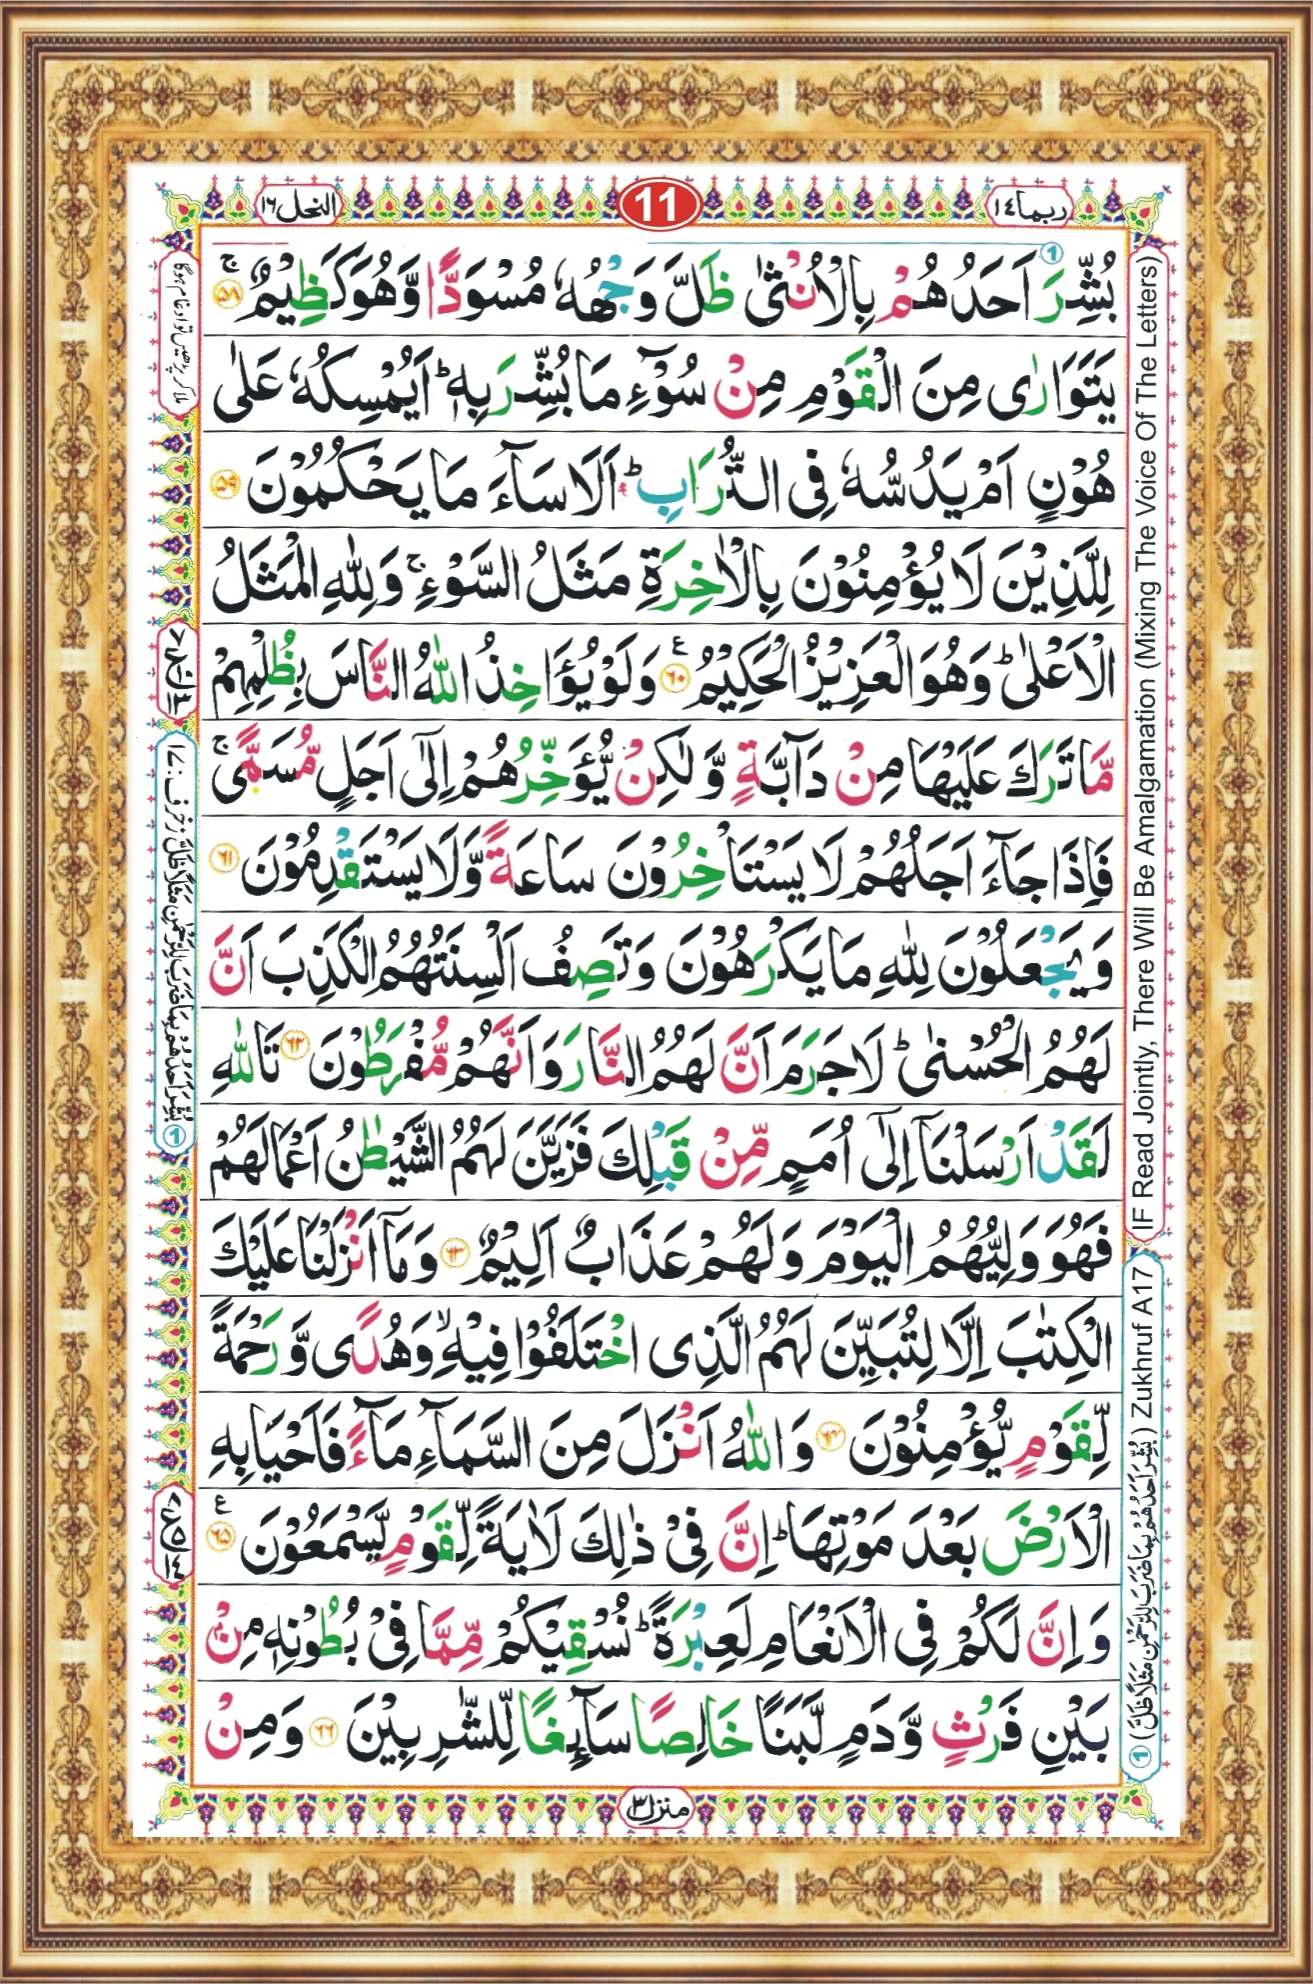 ربما ١٤
11
النحل ١٦
بُشِّرَ اَحَدُهُمْ بِالْاُنْثٰى ظَلَّ وَجْهُهٗ مُسْوَدًّا وَّهُوَ كَظِيْمٌ ۚ ٥٨
يَتَوَارٰى مِنَ الْقَوْمِ مِنْ سُوْٓءِ مَا بُشِّرَ بِهٖ ؕ اَيُمْسِكُهٗ عَلٰى
هُوْنٍ اَمْ يَدُسُّهٗ فِى التُّرَابِ ؕ اَلَا سَآءَ مَا يَحْكُمُوْنَ ٥٩
لِلَّذِيْنَ لَا يُؤْمِنُوْنَ بِالْاٰخِرَةِ مَثَلُ السَّوْءِ ۚ وَلِلّٰهِ الْمَثَلُ
الْاَعْلٰى ؕ وَهُوَ الْعَزِيْزُ الْحَكِيْمُ ٦٠ وَلَوْ يُؤَاخِذُ اللّٰهُ النَّاسَ بِظُلْمِهِمْ
مَّا تَرَكَ عَلَيْهَا مِنْ دَآبَّةٍ وَّلٰكِنْ يُّؤَخِّرُهُمْ اِلٰٓى اَجَلٍ مُّسَمًّى ۚ
فَاِذَا جَآءَ اَجَلُهُمْ لَا يَسْتَاْخِرُوْنَ سَاعَةً وَّلَا يَسْتَقْدِمُوْنَ ٦١
وَيَجْعَلُوْنَ لِلّٰهِ مَا يَكْرَهُوْنَ وَتَصِفُ اَلْسِنَتُهُمُ الْكَذِبَ اَنَّ
لَهُمُ الْحُسْنٰى ؕ لَا جَرَمَ اَنَّ لَهُمُ النَّارَ وَاَنَّهُمْ مُّفْرَطُوْنَ ٦٢ تَاللّٰهِ
لَقَدْ اَرْسَلْنَآ اِلٰٓى اُمَمٍ مِّنْ قَبْلِكَ فَزَيَّنَ لَهُمُ الشَّيْطٰنُ اَعْمَالَهُمْ
فَهُوَ وَلِيُّهُمُ الْيَوْمَ وَلَهُمْ عَذَابٌ اَلِيْمٌ ٦٣ وَمَآ اَنْزَلْنَا عَلَيْكَ
الْكِتٰبَ اِلَّا لِتُبَيِّنَ لَهُمُ الَّذِى اخْتَلَفُوْا فِيْهِ ۙ وَهُدًى وَّرَحْمَةً
لِّقَوْمٍ يُّؤْمِنُوْنَ ٦٤ وَاللّٰهُ اَنْزَلَ مِنَ السَّمَآءِ مَآءً فَاَحْيَا بِهِ
الْاَرْضَ بَعْدَ مَوْتِهَا ؕ اِنَّ فِىْ ذٰلِكَ لَاٰيَةً لِّقَوْمٍ يَّسْمَعُوْنَ ٦٥
وَاِنَّ لَكُمْ فِى الْاَنْعَامِ لَعِبْرَةً ؕ نُسْقِيْكُمْ مِّمَّا فِىْ بُطُوْنِهٖ مِنْۢ
بَيْنِ فَرْثٍ وَّدَمٍ لَّبَنًا خَالِصًا سَآئِغًا لِّلشّٰرِبِيْنَ ٦٦ وَمِنْ
منزل ٣
IF Read Jointly, There Will Be Amalgamation (Mixing The Voice Of The Letters)
① (بُشِّرَ اَحَدُهُمْ بِمَا ضَرَبَ لِلرَّحْمٰنِ مَثَلًا ظَلَّ) Zukhruf A17
ملا کر پڑھیں تو ادغام ہوگا
① بُشِّرَ اَحَدُهُمْ بِمَا ضَرَبَ لِلرَّحْمٰنِ مَثَلًا ظَلَّ زخرف : ١٧